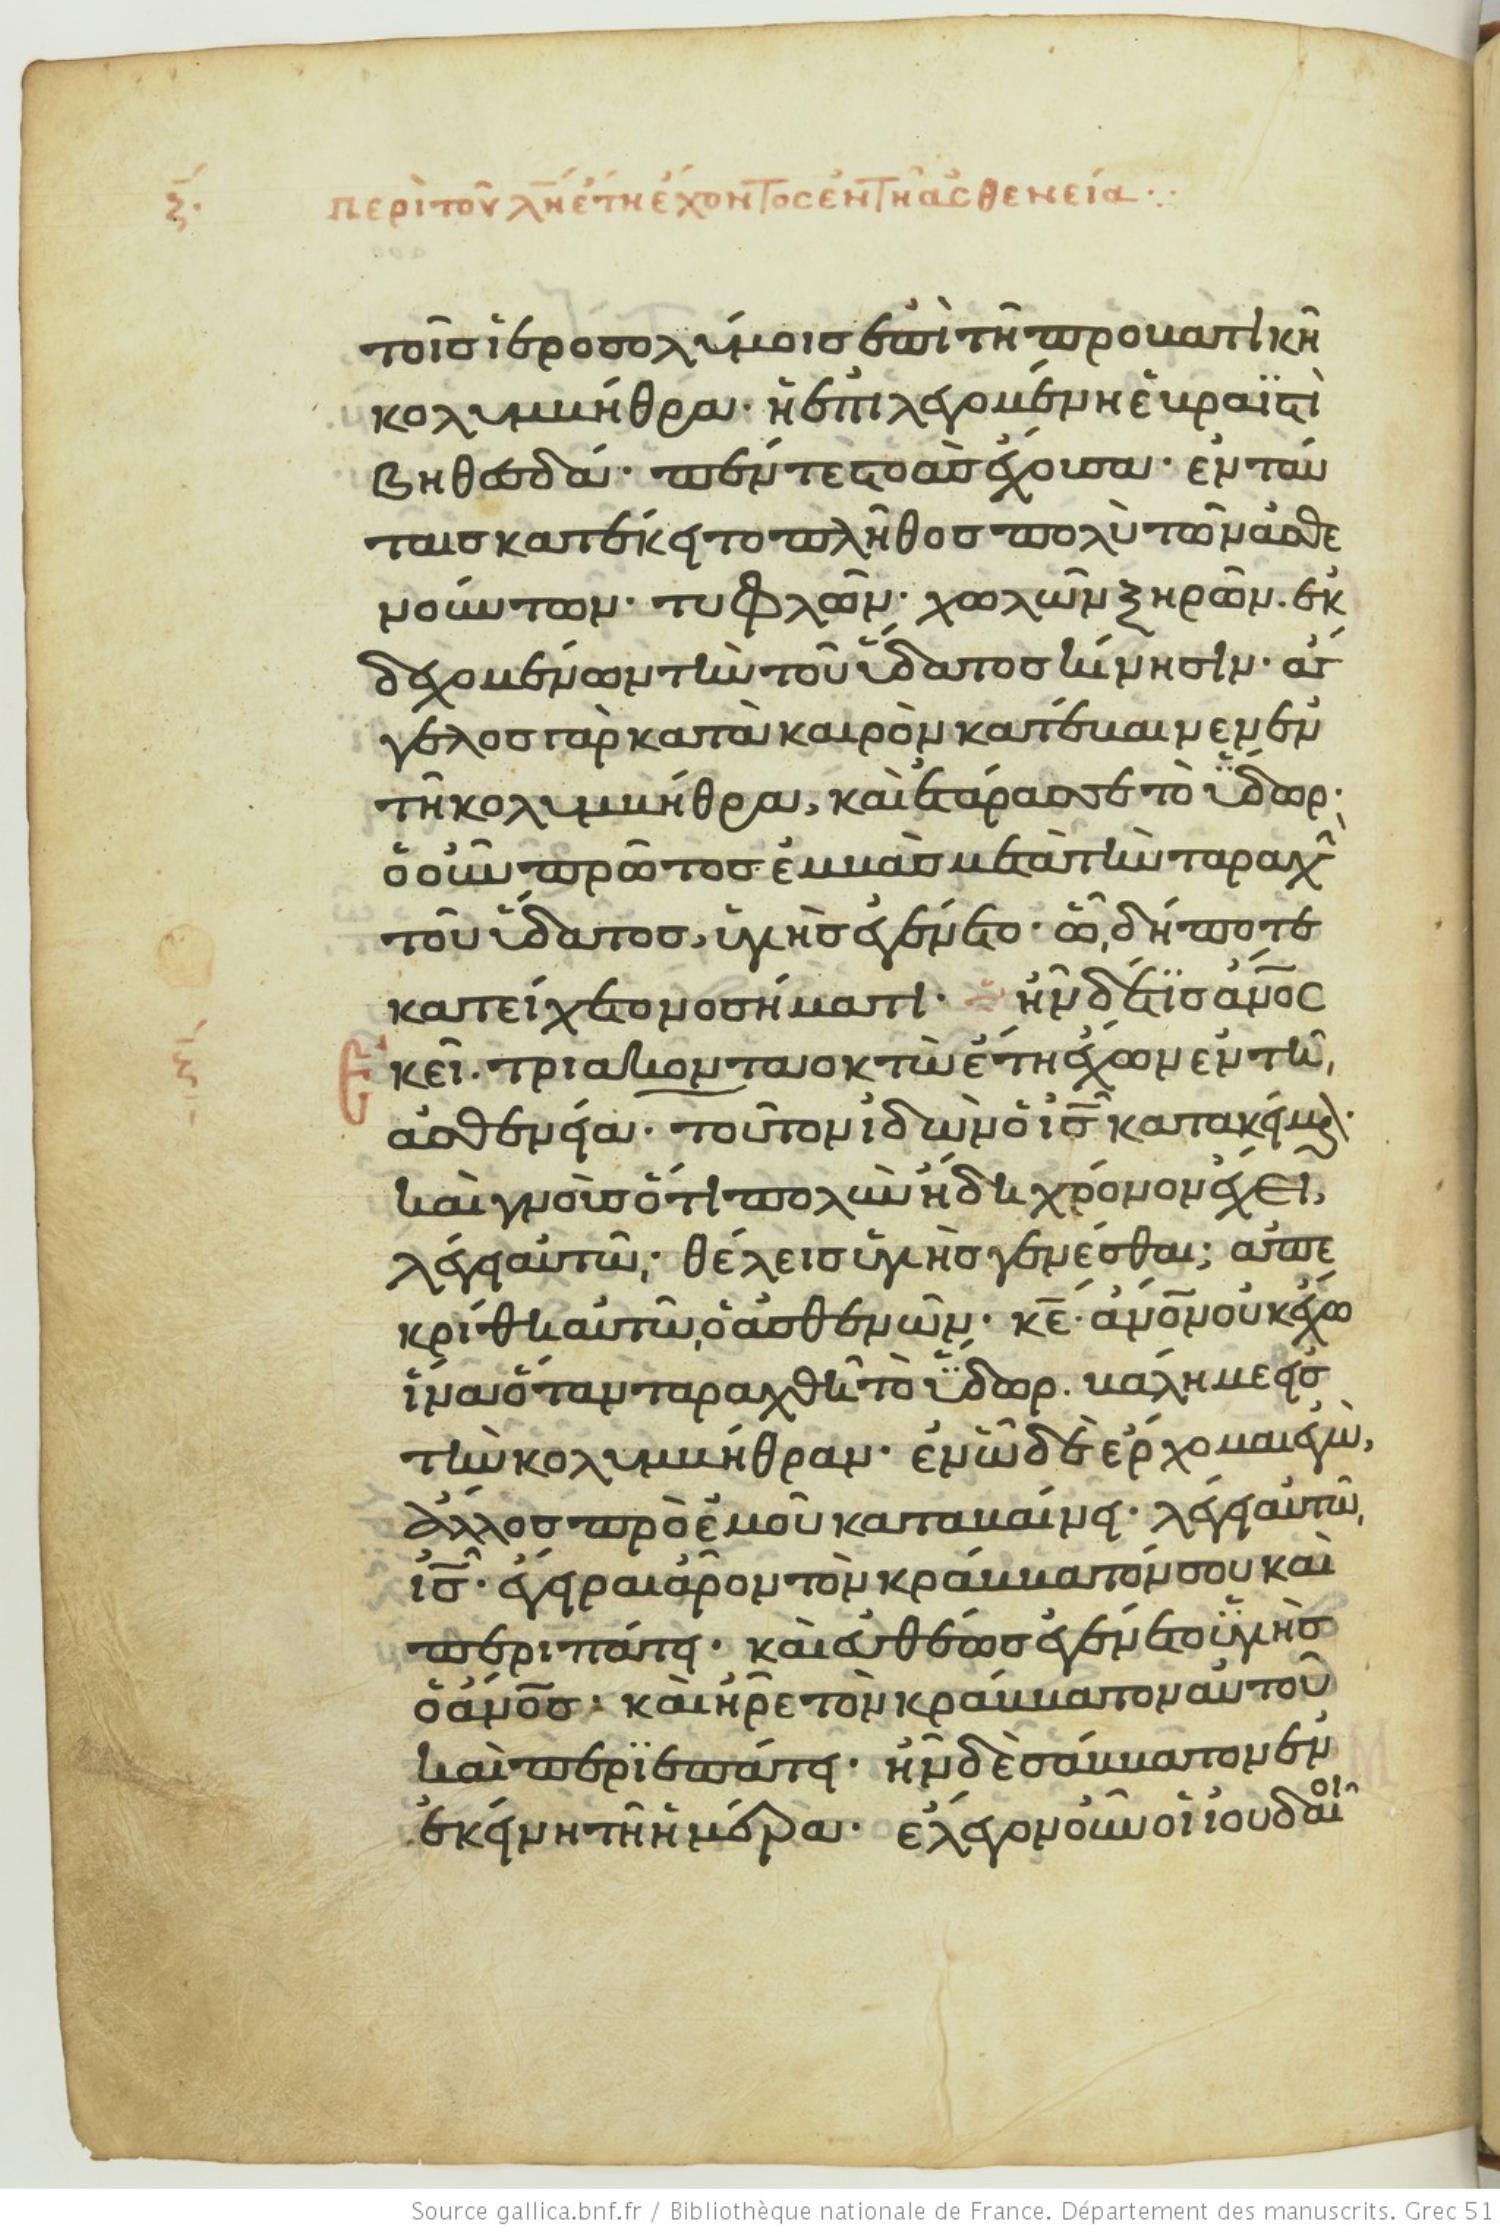 ζ·
περὶ τοῦ λη ἔτη ἔχοντος ἐν τῆ ἀσθενεία
τοῖς ἱεροσολύμοις ἐπὶ τῆ προβατικῆ
κολυμβήθρα· ἡ ἐπιλεγομένη ἑβραϊστὶ
βηθεσδά· πέντε στοὰς ἔχουσα· ἐν ταύ
ταις κατέκειτο πλῆθος πολὺ τῶν ἀσθε
νούντων· τυφλῶν· χωλῶν ξηρῶν· ἐκ
δεχομένων τὴν τοῦ ὕδατος κίνησιν· ἄγ
γελος γὰρ κατὰ καιρὸν κατέβαινεν ἐν
τῆ κολυμβήθρα, καὶ ἐτάρασσε τὸ ὕδωρ·
ὁ οὖν πρῶτος ἐμβὰς μετὰ τὴν ταραχὴ
τοῦ ὕδατος, ὑγιὴς ἐγένετο· ᾧ δήποτε
κατείχετο νοσήματι· ἦν δέ τϊς ἀνος
ἐκεῖ· τριακονταοκτὼ ἔτη ἔχων ἐν τῆ
ἀσθενεία· τοῦτον ἰδὼν ὁ ις κατακείμεν·
καὶ γνοὺς ὅτι πολὺν ἤδη χρόνον ἔχει,
λέγει αὐτῶ· θέλεις ὑγιὴς γενέσθαι; ἀπε
κρίθη αὐτῶ ὁ ἀσθενῶν· κε· ἀνον οὐκ ἔχω
ἵνα ὅταν ταραχθῆ τὸ ὕδωρ· βάλη με εἰς
τὴν κολυμβήθραν· ἐν ᾧ δὲ ἔρχομαι ἐγὼ,
ἄλλος πρὸ ἐμοῦ καταβαίνει· λέγει αὐτῶ
ὁ ις· ἔγειραι ἆρον τὸν κράββατόν σου καὶ
περιπάτει· καὶ εὐθέως ἐγένετο ὑγιὴς
ὁ ἀνος· καὶ ἦρε τὸν κράββατον αὐτοῦ
καὶ περϊεπάτει· ἦν δὲ σάββατον ἐν
ἐκείνη τῆ ἡμέρα· ἔλεγον οὖν οἱ ἰουδαῖοι
Source gallica.bnf.fr / Bibliothèque nationale de France. Département des manuscrits. Grec 51